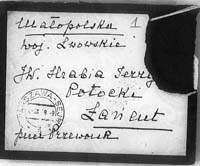 Małopolska 1
woj. Lwowskie
JW. Hrabia Jerzy
Potocki
Łańcut
Przeworsk